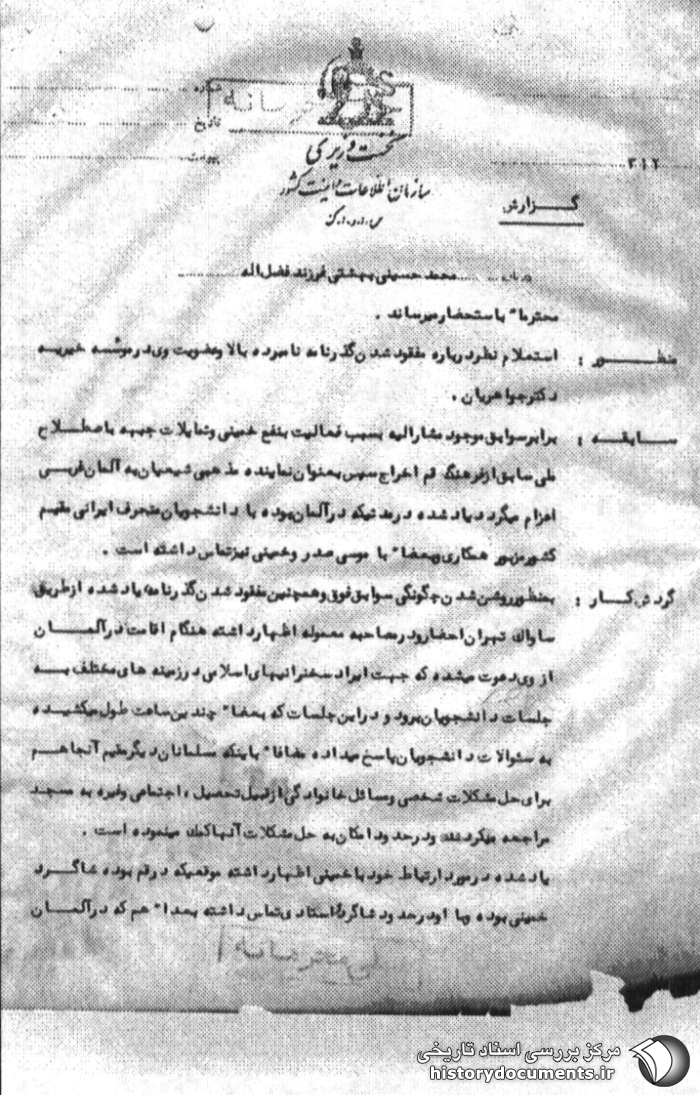 شماره
تاریخ
پیوست
محرمانه
نخست وزیری
سازمان اطلاعات و امنیت کشور
س.ا.و.ا.ک
۳۱۲
گزارش
درباره محمد حسینی بهشتی فرزند فضل اله
محترما" باستحضار میرساند .
منظور : استعلام نظر درباره مفقود شدن گذرنامه نامبرده بالا و عضویت وی در موسسه خیریه
دکتر جواهریان .
سابقه : برابر سوابق موجود مشارالیه بسبب فعالیت بنفع خمینی و تمایلات جبهه باصطلاح
ملی سابق از فرهنگ قم اخراج سپس بعنوان نماینده مذهبی شیعیان به آلمان غربی
اعزام میگردد یاد شده در مدتیکه در آلمان بوده با دانشجویان منحرف ایرانی مقیم
کشور مزبور همکاری و بعضا" با موسی صدر و خمینی نیز تماس داشته است .
گردش کار : بمنظور روشن شدن چگونگی سوابق فوق و همچنین مفقود شدن گذرنامه یاد شده از طریق
ساواک تهران احضار و در مصاحبه معموله اظهار داشته هنگام اقامت در آلمان
از وی دعوت میشده که جهت ایراد سخنرانیهای اسلامی در زمینه های مختلف به
جلسات دانشجویان برود و در این جلسات که بعضا" چندین ساعت طول میکشیده
به سئوالات دانشجویان پاسخ میداده مضافا" باینکه مسلمانان دیگر مقیم آنجا هم
برای حل مشکلات شخصی و مسائل خانوادگی از قبیل تحصیل ، اجتماعی و غیره به مسجد
مراجعه میکردند و در حدود امکان به حل مشکلات آنها کمک مینموده است .
یاد شده در مورد ارتباط خود با خمینی اظهار داشته موقعیکه در قم بوده شاگرد
خمینی بوده و با او در حدود شاگرد و استادی تماس داشته بعدا" هم که در آلمان
مرکز بررسی اسناد تاریخی
historydocuments.ir